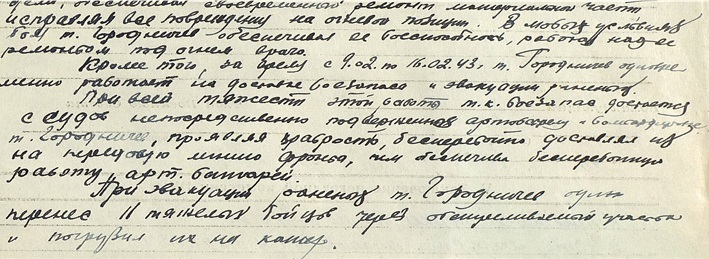 дели, обеспечивая своевременный ремонт материальной части
исправляя все повреждения на огневой позиции. В любых условиях
боя т. Городничев обеспечивал ее боеспособность, работая над ее
ремонтом под огнем врага.
Кроме того, за время с 9.02. по 16.02.43г. т. Городничев одновре
менно работает на доставке боезапаса и эвакуации раненых.
При всей тяжести этой работы т.к. боезапас достается
с судов непосредственно подверженных артобстрелу и бомбардировке
т. Городничев, проявляя храбрость, бесперебойно доставлял их
на передовую линию фронта, чем обеспечивал бесперебойную
работу арт. батарей.
При эвакуации раненых т. Городничев один
перенес 11 тяжелых бойцов через обстреливаемый участок
и погрузил их на катер.